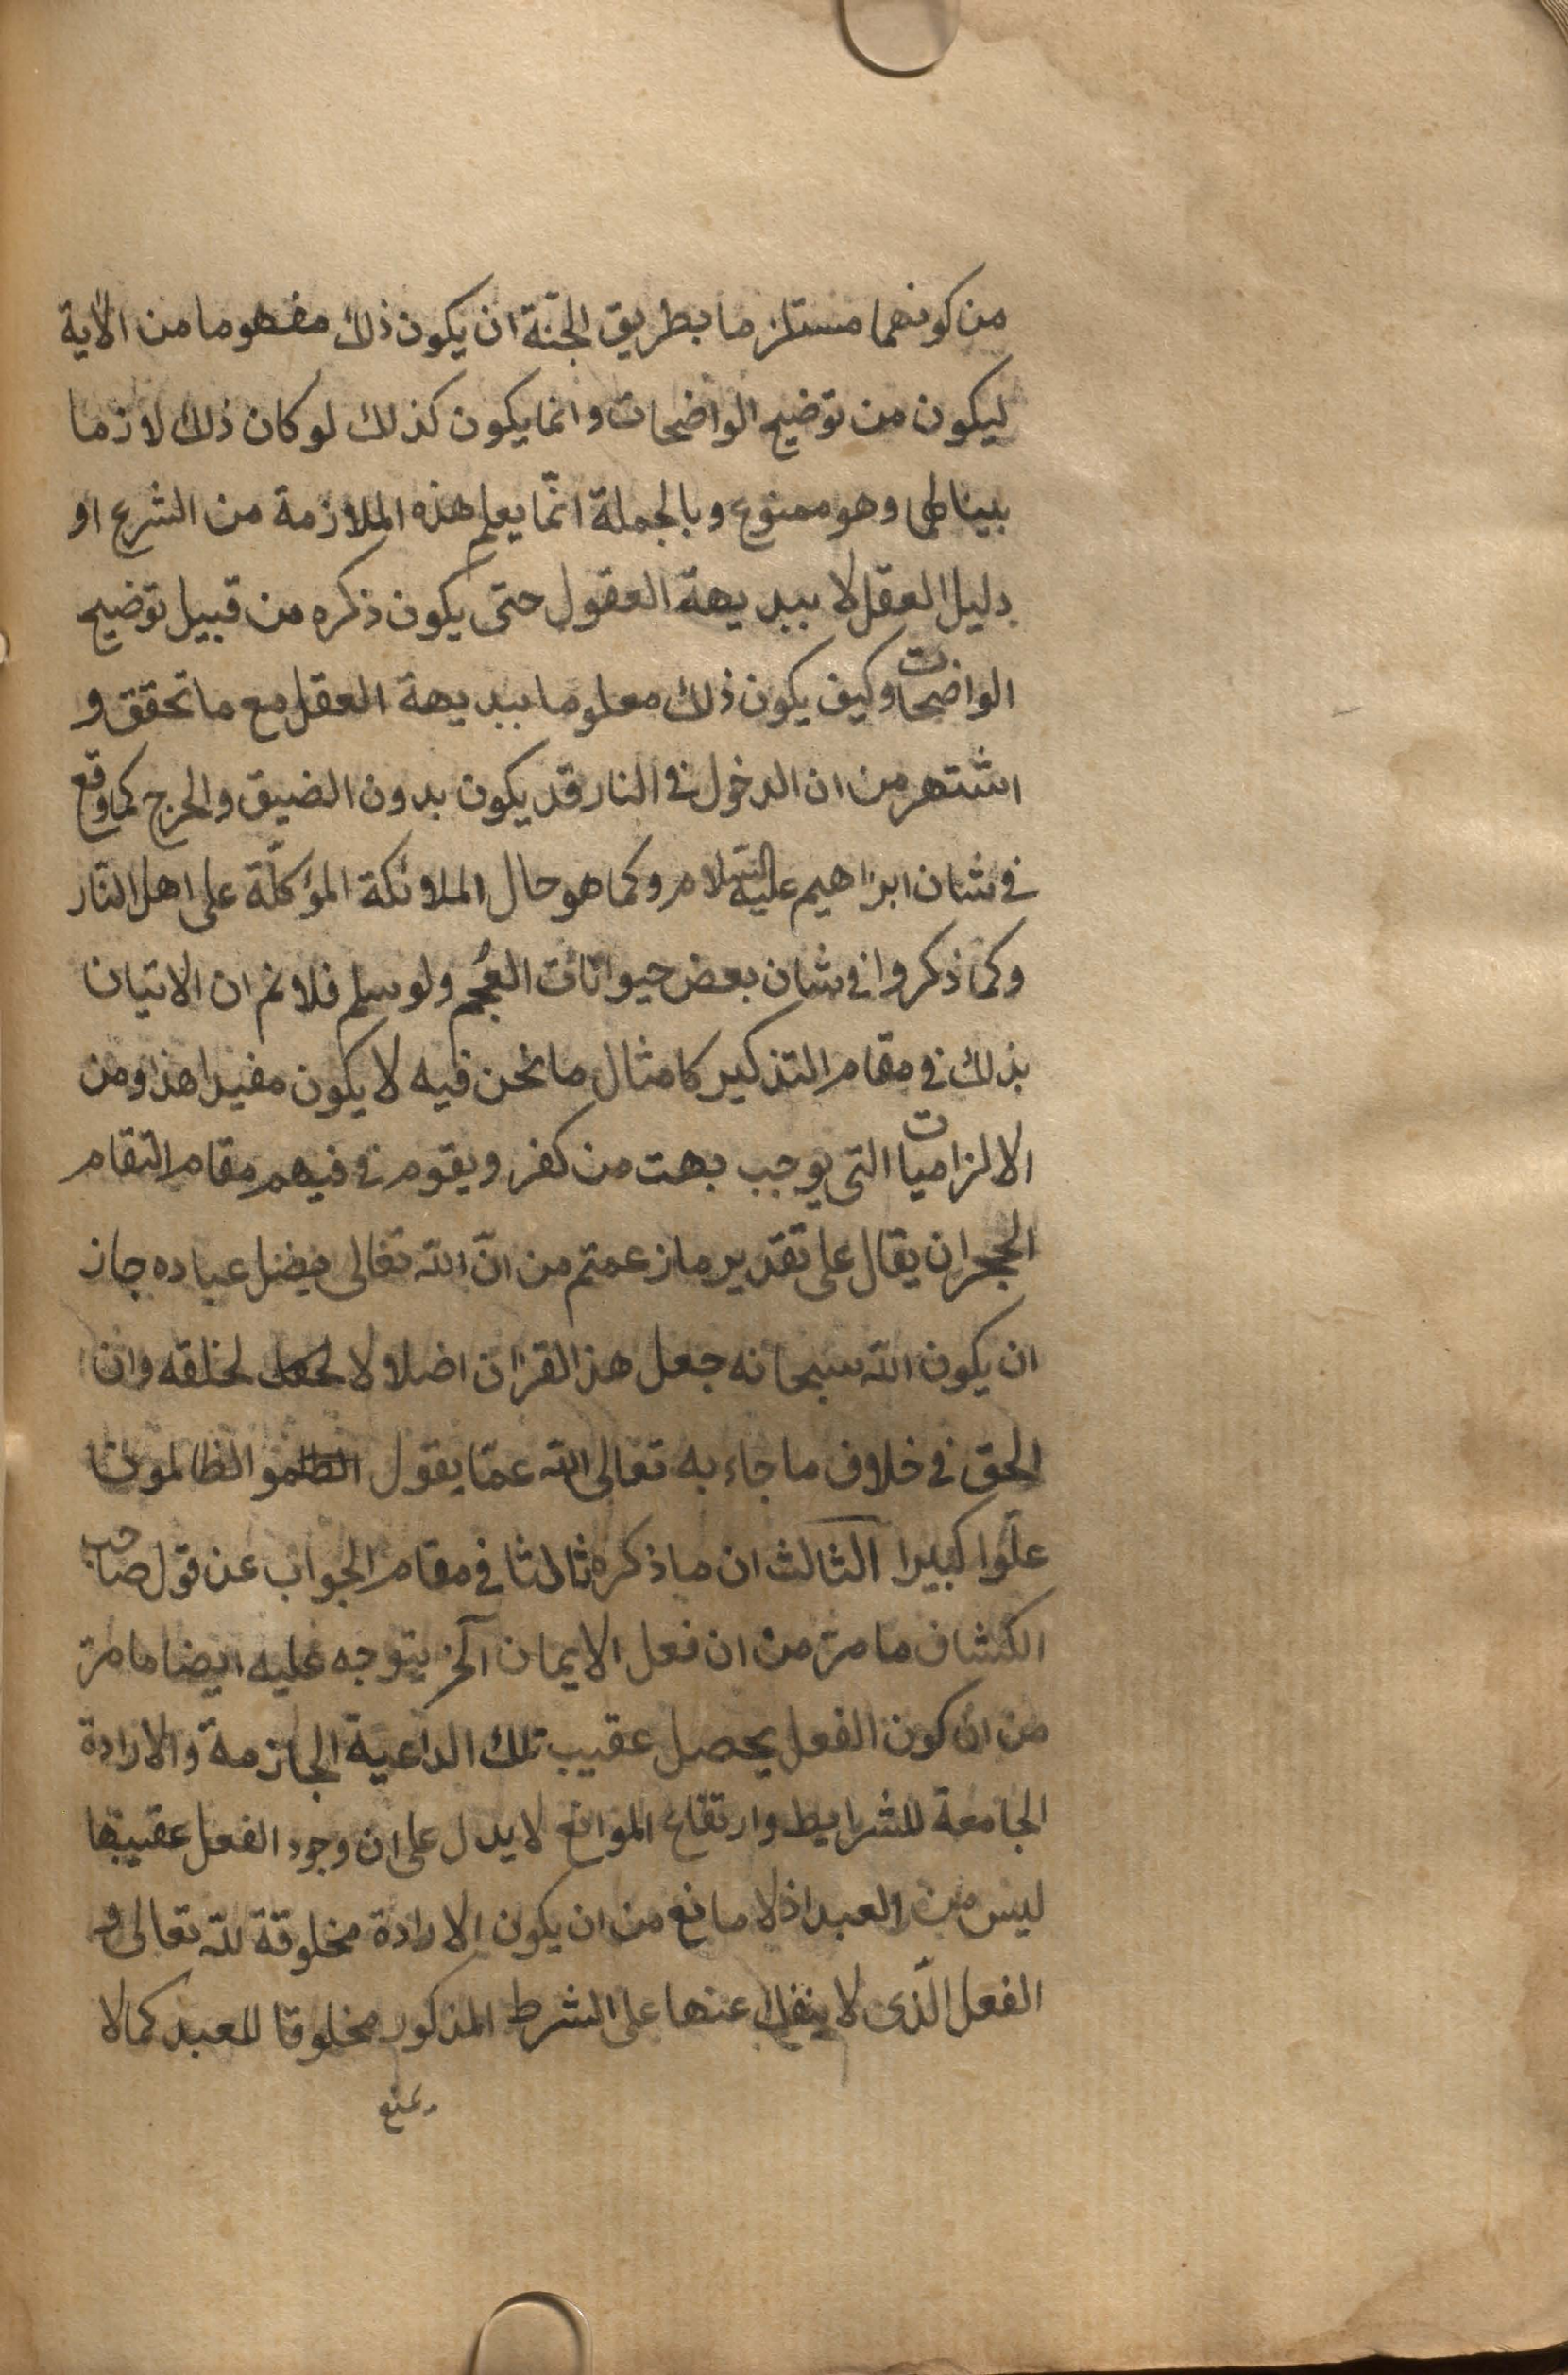 من كونهما مستلزما بطريق الجنّة ان يكون ذلك مفهوما من الآية
ليكون من توضيح الواضحات وانما يكون كذلك لو كان ذلك لازما
بينا وهو ممنوع وبالجملة انّما يعلم هذه الملازمة من الشرع او
دليل العقل لا ببديهة العقول حتى يكون ذكره من قبيل توضيح
الواضحات وكيف يكون ذلك معلوما ببديهة العقل مع ما تحقق و
اشتهر من ان الدخول في النار قد يكون بدون الضيق والحرج كما وقع
في شان ابراهيم عليه السّلام وكما هو حال الملائكة المؤكلّة على اهل النّار
وكما ذكروا في شان بعض حيوانات العُجم ولو سلم فلا نم ان الاتيان
بذلك في مقام التذكير كامثال ما نحن فيه لا يكون مفيدا هذا ومن
الالزاميات التى يوجب بهت من كفر ويقوم في فيهم مقام التقام
الحجر ان يقال على تقدير ما زعمتم من انّ الله تعالى يضل عباده جاز
ان يكون الله سبحانه جعل هذا القرآن اضلالا لخلقه وان
الحق في خلاف ما جاء به تعالى الله عمّا يقول الظالمون
علوّا كبيرا الثالث ان ما ذكره ثالثا في مقام الجواب عن قول صاحب
الكشاف ما مرّ من ان فعل الايمان آلخ يتوجه عليه ايضا ما مرّ
من ان كون الفعل يحصل عقيب تلك الداعية الجازمة والارادة
الجامعة للشرايط وارتفاع الموانع لا يدل على ان وجود الفعل عقيبها
ليس من العبد اذ لا مانع من ان يكون الارادة مخلوقة لله تعالى و
الفعل الّذى لا ينفك عنها على الشرط المذكور مخلوقا للعبد كما لا
يمنع